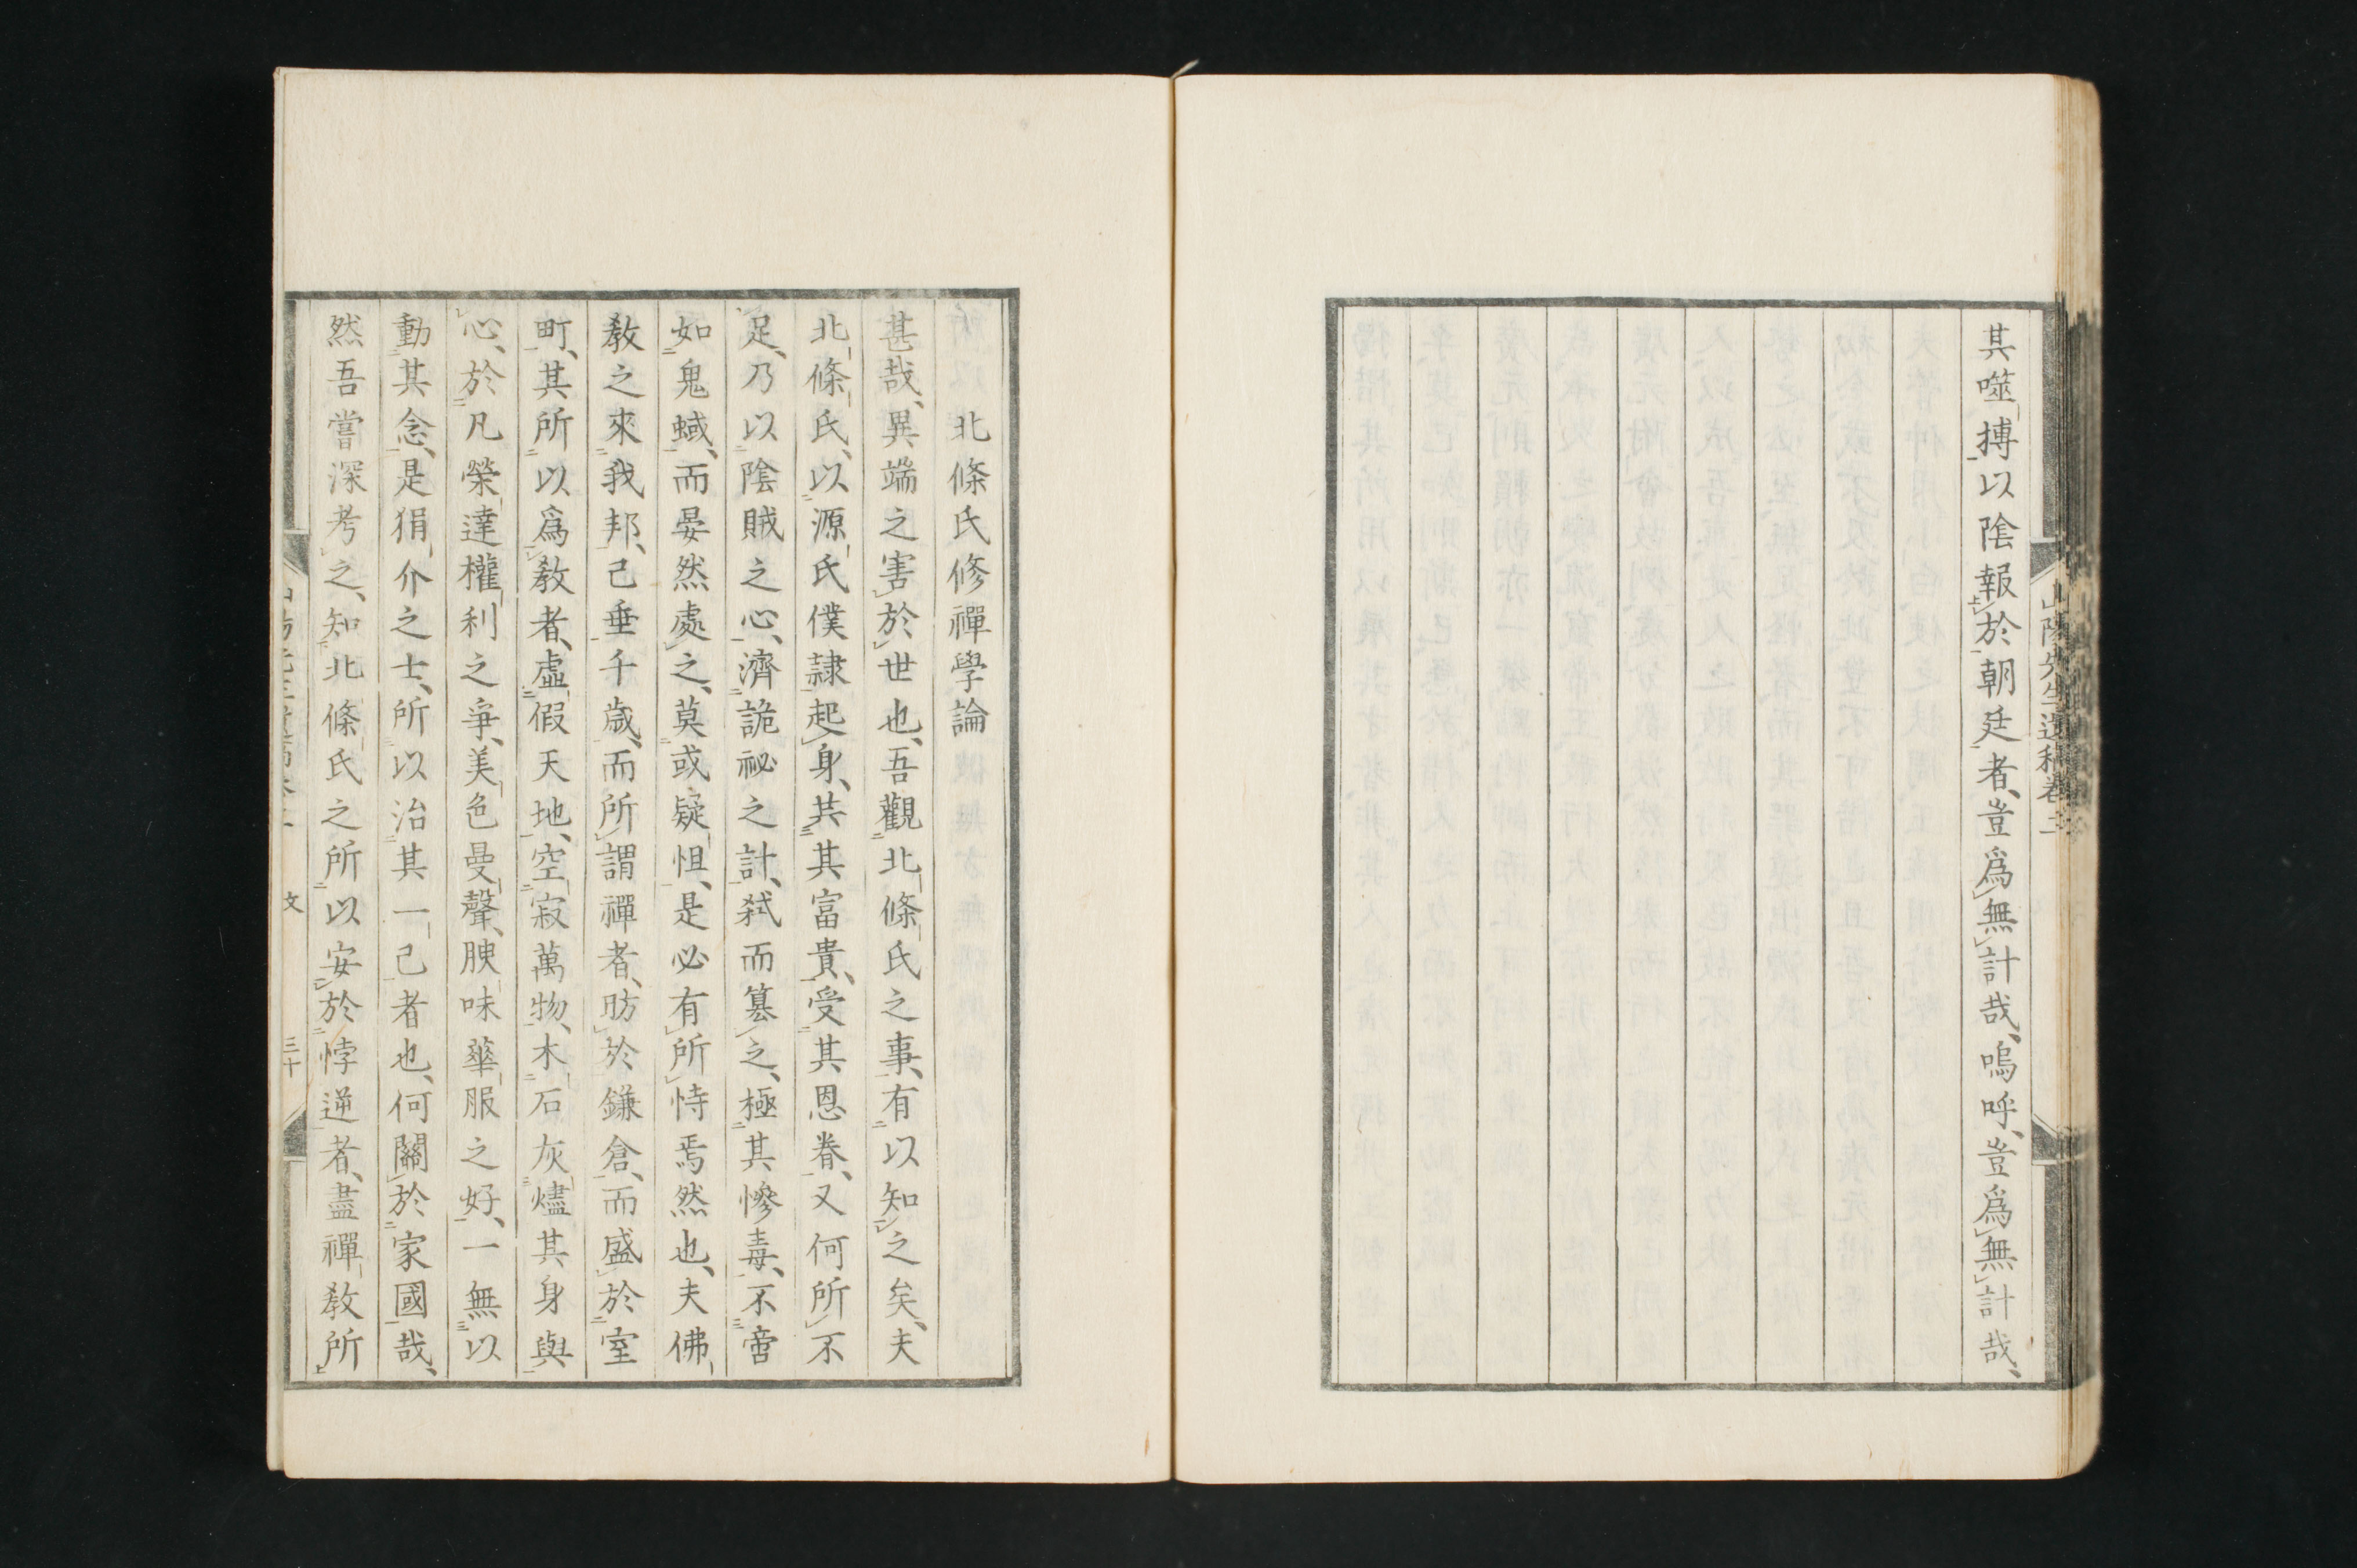 其噬搏以陰報於朝廷者、豈爲無計哉、嗚呼、豈爲無計哉、
山陽先生遺稿卷二
北條氏修禪學論
甚哉、異端之害於世也、吾觀北條氏之事、有以知之矣、夫
北條氏、以源氏僕隷起身、共其富貴、受其恩眷、又何所不
足、乃以陰賊之心、濟詭祕之計、弑而簒之、極其慘毒、不啻
如鬼蜮、而晏然處之、莫或疑怛、是必有所恃焉然也、夫佛
教之來我邦、已垂千歳、而所謂禪者、昉於鎌倉、而盛於室
町、其所以爲教者、虛假天地、空寂萬物、木石灰燼其身與
心、於凡榮達權利之爭、美色曼聲、腴味華服之好、一無以
動其念、是狷介之士、所以治其一己者也、何關於家國哉、
然吾嘗深考之、知北條氏之所以安於悖逆者、盡禪教所
文
三十